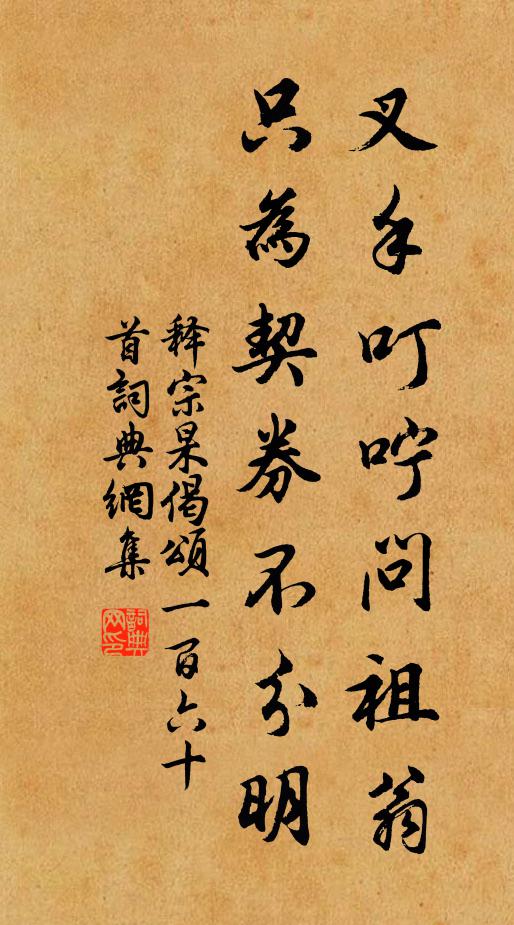 叉手叮咛问祖翁
只為契券不分明
释宗杲偈頌一百六十
首詞典網集
詞典网印